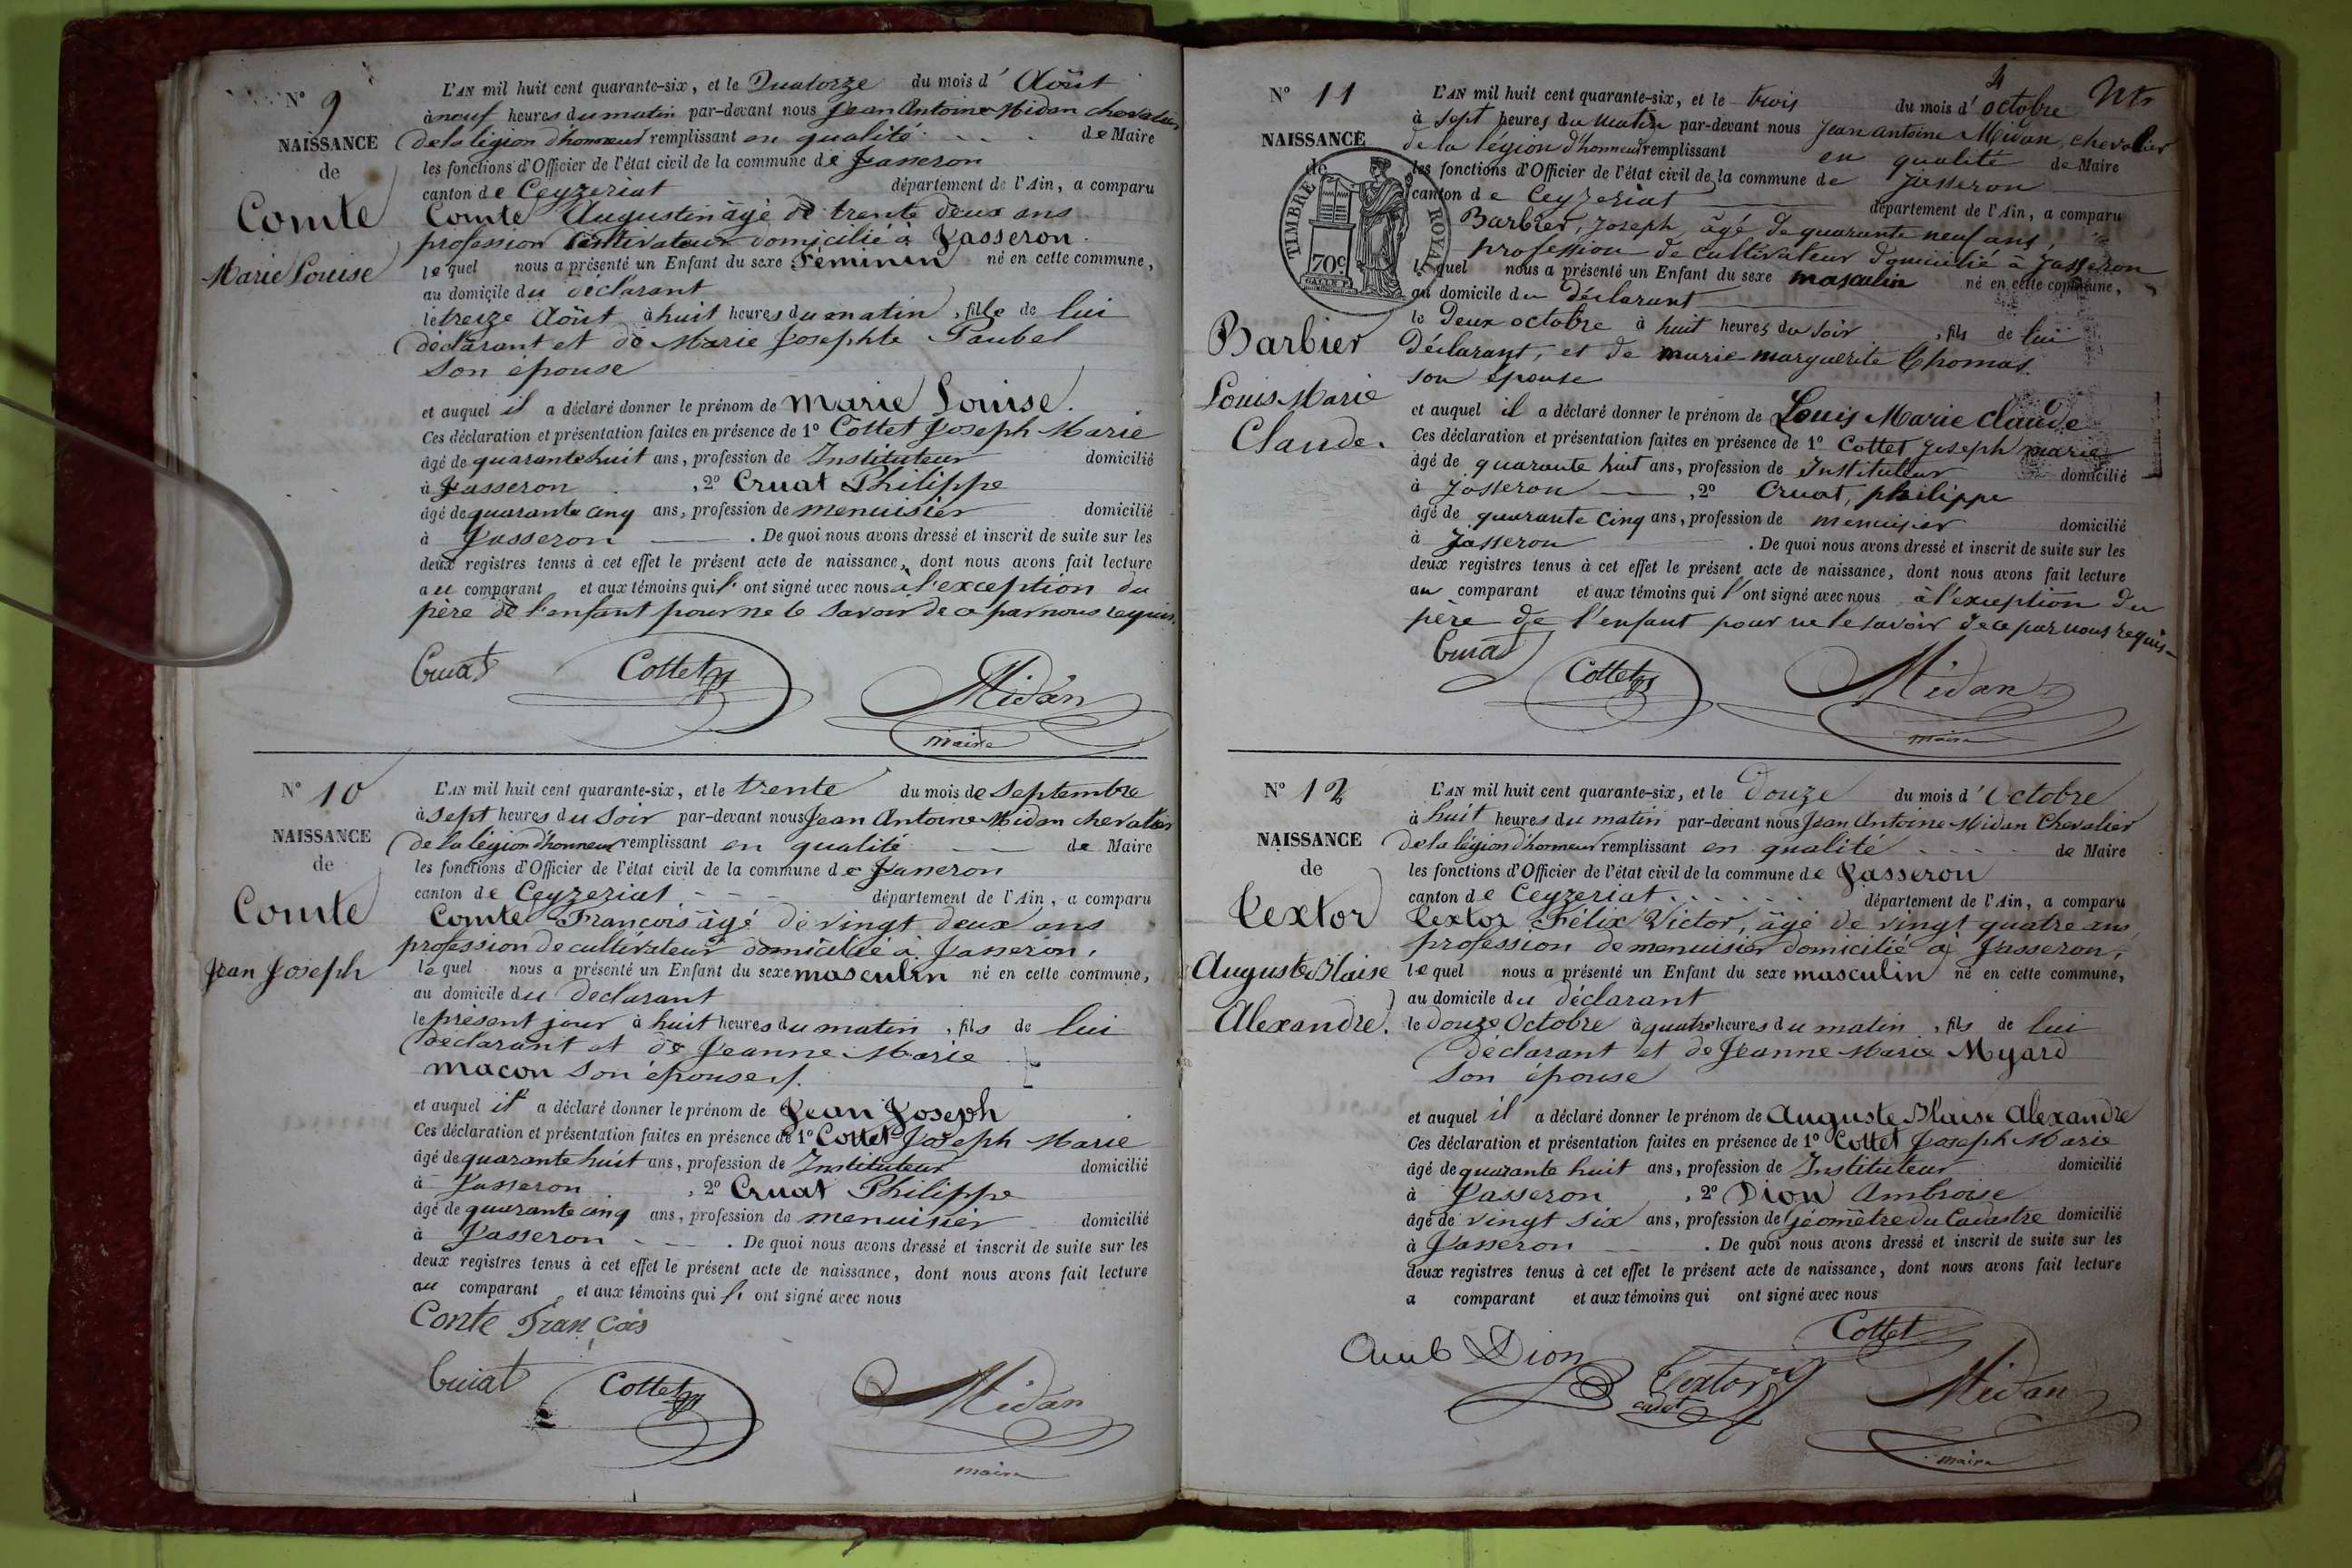 N° 9
NAISSANCE
de
Comte
Marie Louise
L'AN mil huit cent quarante-six, et le Quatorze du mois d' Août
à neuf heures du matin par-devant nous Jean Antoine Midan chevalier
de la légion d'honneur remplissant en qualité de Maire
les fonctions d'Officier de l'état civil de la commune de Jasseron
canton de Ceyzeriat département de l'Ain, a comparu
Comte Augustin âgé de trente deux ans
profession cultivateur domicilié à Jasseron.
lequel nous a présenté un Enfant du sexe Féminin né en cette commune,
au domicile du déclarant
le treize Août à huit heures du matin, fille de lui
déclarant et de Marie Josephte Paubel
son épouse
et auquel il a déclaré donner le prénom de Marie Louise.
Ces déclaration et présentation faites en présence de 1° Cottet Joseph Marie
âgé de quarante huit ans, profession de Instituteur domicilié
à Jasseron, 2° Cruat Philippe
âgé de quarante cinq ans, profession de menuisier domicilié
à Jasseron. De quoi nous avons dressé et inscrit de suite sur les
deux registres tenus à cet effet le présent acte de naissance, dont nous avons fait lecture
au comparant et aux témoins qui l' ont signé avec nous à l'exception du
père de l'enfant pour ne le savoir de ce par nous requis.
Cruat Cottet Midan
maire
N° 10
NAISSANCE
de
Comte
Jean Joseph
L'AN mil huit cent quarante-six, et le trente du mois de Septembre
à sept heures du soir par-devant nous Jean Antoine Midan chevalier
de la légion d'honneur remplissant en qualité de Maire
les fonctions d'Officier de l'état civil de la commune de Jasseron
canton de Ceyzeriat département de l'Ain, a comparu
Comte François âgé de vingt deux ans
profession de cultivateur domicilié à Jasseron,
lequel nous a présenté un Enfant du sexe masculin né en cette commune,
au domicile du déclarant
le présent jour à huit heures du matin, fils de lui
déclarant et de Jeanne Marie
macon son épouse
et auquel il a déclaré donner le prénom de Jean Joseph
Ces déclaration et présentation faites en présence de 1° Cottet Joseph Marie
âgé de quarante huit ans, profession de Instituteur domicilié
à Jasseron, 2° Cruat Philippe
âgé de quarante cinq ans, profession de menuisier domicilié
à Jasseron. De quoi nous avons dressé et inscrit de suite sur les
deux registres tenus à cet effet le présent acte de naissance, dont nous avons fait lecture
au comparant et aux témoins qui l' ont signé avec nous
Conte François
Cruat Cottet Midan
maire
4
N° 11
NAISSANCE
de
TIMBRE ROYAL
70c
Barbier
Louis Marie
Claude.
L'AN mil huit cent quarante-six, et le trois du mois d' octobre
à sept heures du matin par-devant nous Jean Antoine Midan, chevalier
de la légion d'honneur remplissant en qualité de Maire
les fonctions d'Officier de l'état civil de la commune de Jasseron
canton de Ceyzeriat département de l'Ain, a comparu
Barbier, Joseph, âgé de quarante neuf ans,
profession de cultivateur domicilié à Jasseron
lequel nous a présenté un Enfant du sexe masculin né en cette commune,
au domicile du déclarant
le Deux octobre à huit heures du soir, fils de lui
déclarant, et de marie marguerite Thomas
son épouse
et auquel il a déclaré donner le prénom de Louis Marie Claude
Ces déclaration et présentation faites en présence de 1° Cottet Joseph marie
âgé de quarante huit ans, profession de Instituteur domicilié
à Jasseron, 2° Cruat, philippe
âgé de quarante cinq ans, profession de menuisier domicilié
à Jasseron. De quoi nous avons dressé et inscrit de suite sur les
deux registres tenus à cet effet le présent acte de naissance, dont nous avons fait lecture
au comparant et aux témoins qui l' ont signé avec nous à l'exception du
père de l'enfant pour ne le savoir de ce par nous requis
Cruat Cottet Midan
maire
N° 12
NAISSANCE
de
Textor
Auguste Blaise
Alexandre.
L'AN mil huit cent quarante-six, et le Douze du mois d' Octobre
à huit heures du matin par-devant nous Jean Antoine Midan Chevalier
de la légion d'honneur remplissant en qualité de Maire
les fonctions d'Officier de l'état civil de la commune de Jasseron
canton de Ceyzeriat département de l'Ain, a comparu
Textor Félix Victor, âgé de vingt quatre ans
profession de menuisier domicilié à Jasseron,
lequel nous a présenté un Enfant du sexe masculin né en cette commune,
au domicile du déclarant
le douze Octobre à quatre heures du matin, fils de lui
déclarant et de Jeanne Marie Myard
son épouse
et auquel il a déclaré donner le prénom de Auguste Blaise Alexandre
Ces déclaration et présentation faites en présence de 1° Cottet Joseph Marie
âgé de quarante huit ans, profession de Instituteur domicilié
à Jasseron, 2° Dion Ambroise
âgé de vingt six ans, profession de Géomètre du Cadastre domicilié
à Jasseron. De quoi nous avons dressé et inscrit de suite sur les
deux registres tenus à cet effet le présent acte de naissance, dont nous avons fait lecture
a comparant et aux témoins qui ont signé avec nous
Cottet
Amb Dion Textor Midan
cadet
maire